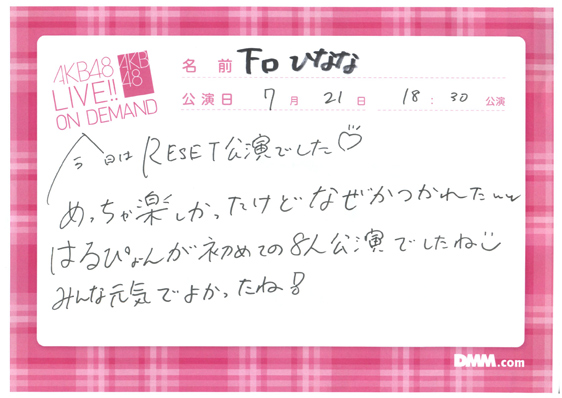 AKB48
LIVE!!
ON DEMAND
AKB
48
名 前 下口ひなな
公演日 7月 21日 18:30 公演
今日はRESET公演でした♡
めっちゃ楽しかったけどなぜかつかれたww
はるぴょんが初めての8人公演でしたね
みんな元気でよかったね!
DMM.com